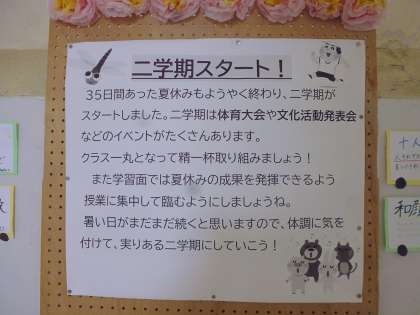 二学期スタート！
35日間あった夏休みもようやく終わり、二学期が
スタートしました。二学期は体育大会や文化活動発表会
などのイベントがたくさんあります。
クラス一丸となって精一杯取り組みましょう！
また学習面では夏休みの成果を発揮できるよう
授業に集中して臨むようにしましょうね。
暑い日がまだまだ続くと思いますので、体調に気を
付けて、実りある二学期にしていこう！
十人
和顔